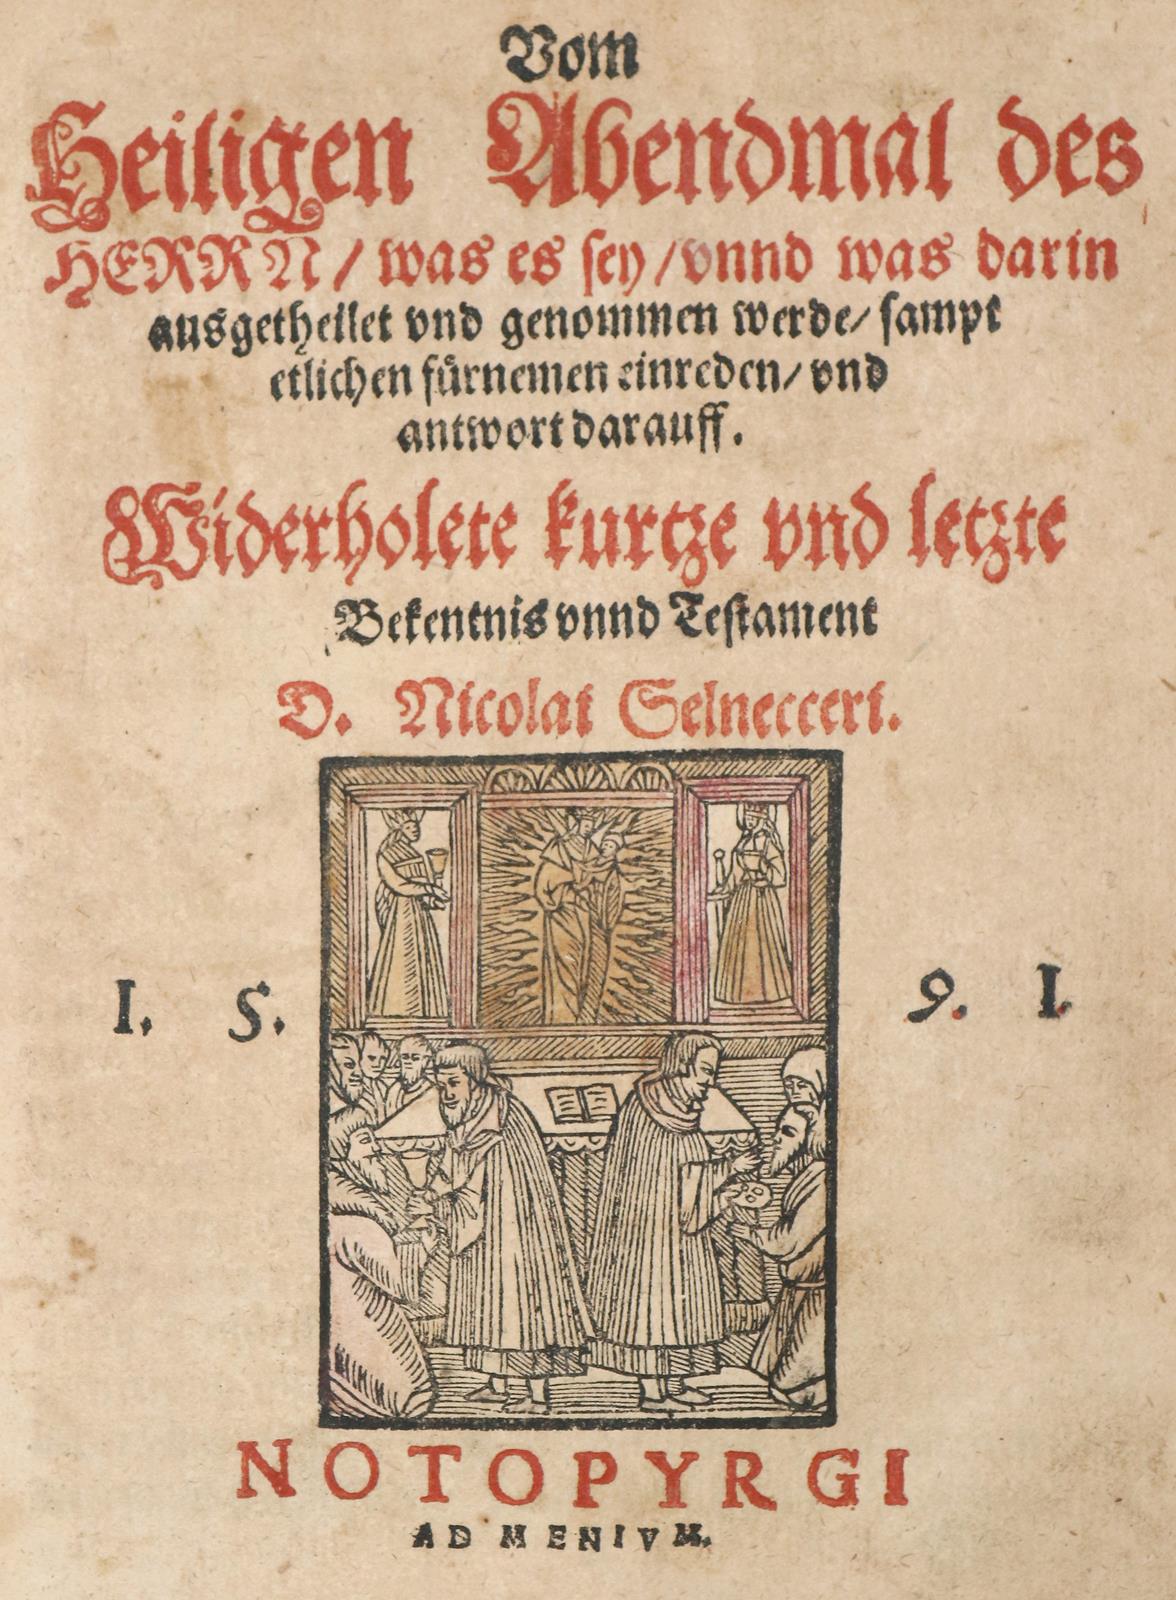 Vom
Heiligen Abendmal des
HERRN / was es sey / vnnd was darin
ausgetheilet vnd genommen werde / sampt
etlichen fürnemen einreden / vnd
antwort darauff.
Widerholete kurtze vnd letzte
Bekentnis vnnd Testament
D. Nicolai Selnecceri.
I. 5. 9. I.
NOTOPYRGI
AD MENIVM.